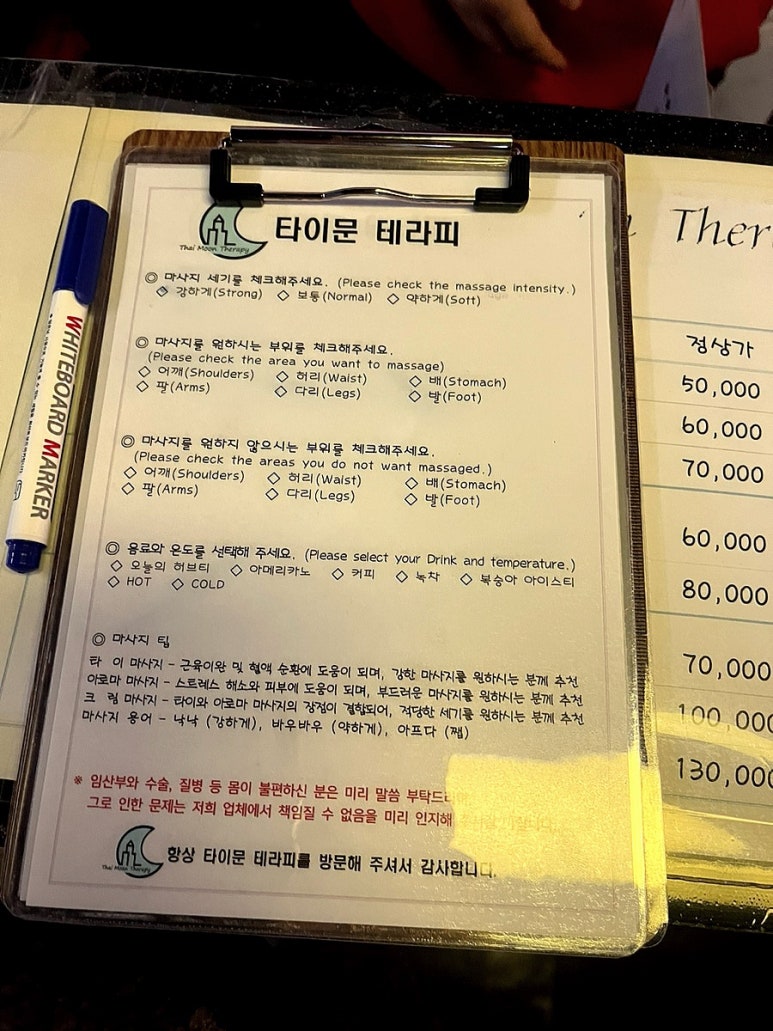 Thai Moon Therapy
타이문 테라피
◎ 마사지 세기를 체크해주세요. (Please check the massage intensity.)
◇ 강하게(Strong) ◇ 보통(Normal) ◇ 약하게(Soft)
◎ 마사지를 원하시는 부위를 체크해주세요.
(Please check the area you want to massage)
◇ 어깨(Shoulders) ◇ 허리(Waist) ◇ 배(Stomach)
◇ 팔(Arms) ◇ 다리(Legs) ◇ 발(Foot)
◎ 마사지를 원하지 않으시는 부위를 체크해주세요.
(Please check the areas you do not want massaged.)
◇ 어깨(Shoulders) ◇ 허리(Waist) ◇ 배(Stomach)
◇ 팔(Arms) ◇ 다리(Legs) ◇ 발(Foot)
◎ 음료와 온도를 선택해 주세요. (Please select your Drink and temperature.)
◇ 오늘의 허브티 ◇ 아메리카노 ◇ 커피 ◇ 녹차 ◇ 복숭아 아이스티
◇ HOT ◇ COLD
◎ 마사지 팁
타 이 마사지 - 근육이완 및 혈액 순환에 도움이 되며, 강한 마사지를 원하시는 분께 추천
아로마 마사지 - 스트레스 해소와 피부에 도움이 되며, 부드러운 마사지를 원하시는 분께 추천
크 림 마사지 - 타이와 아로마 마사지의 장점이 결합되어, 적당한 세기를 원하시는 분께 추천
마사지 용어 - 낙낙 (강하게), 바우바우 (약하게), 아프다 (쨉)
※ 임산부와 수술, 질병 등 몸이 불편하신 분은 미리 말씀 부탁드
그로 인한 문제는 저희 업체에서 책임질 수 없음을 미리 인지해
Thai Moon Therapy
항상 타이문 테라피를 방문해 주셔서 감사합니다.
WHITEBOARD MARKER
Ther
정상가
50,000
60,000
70,000
60,000
80,000
70,000
100,000
130,000